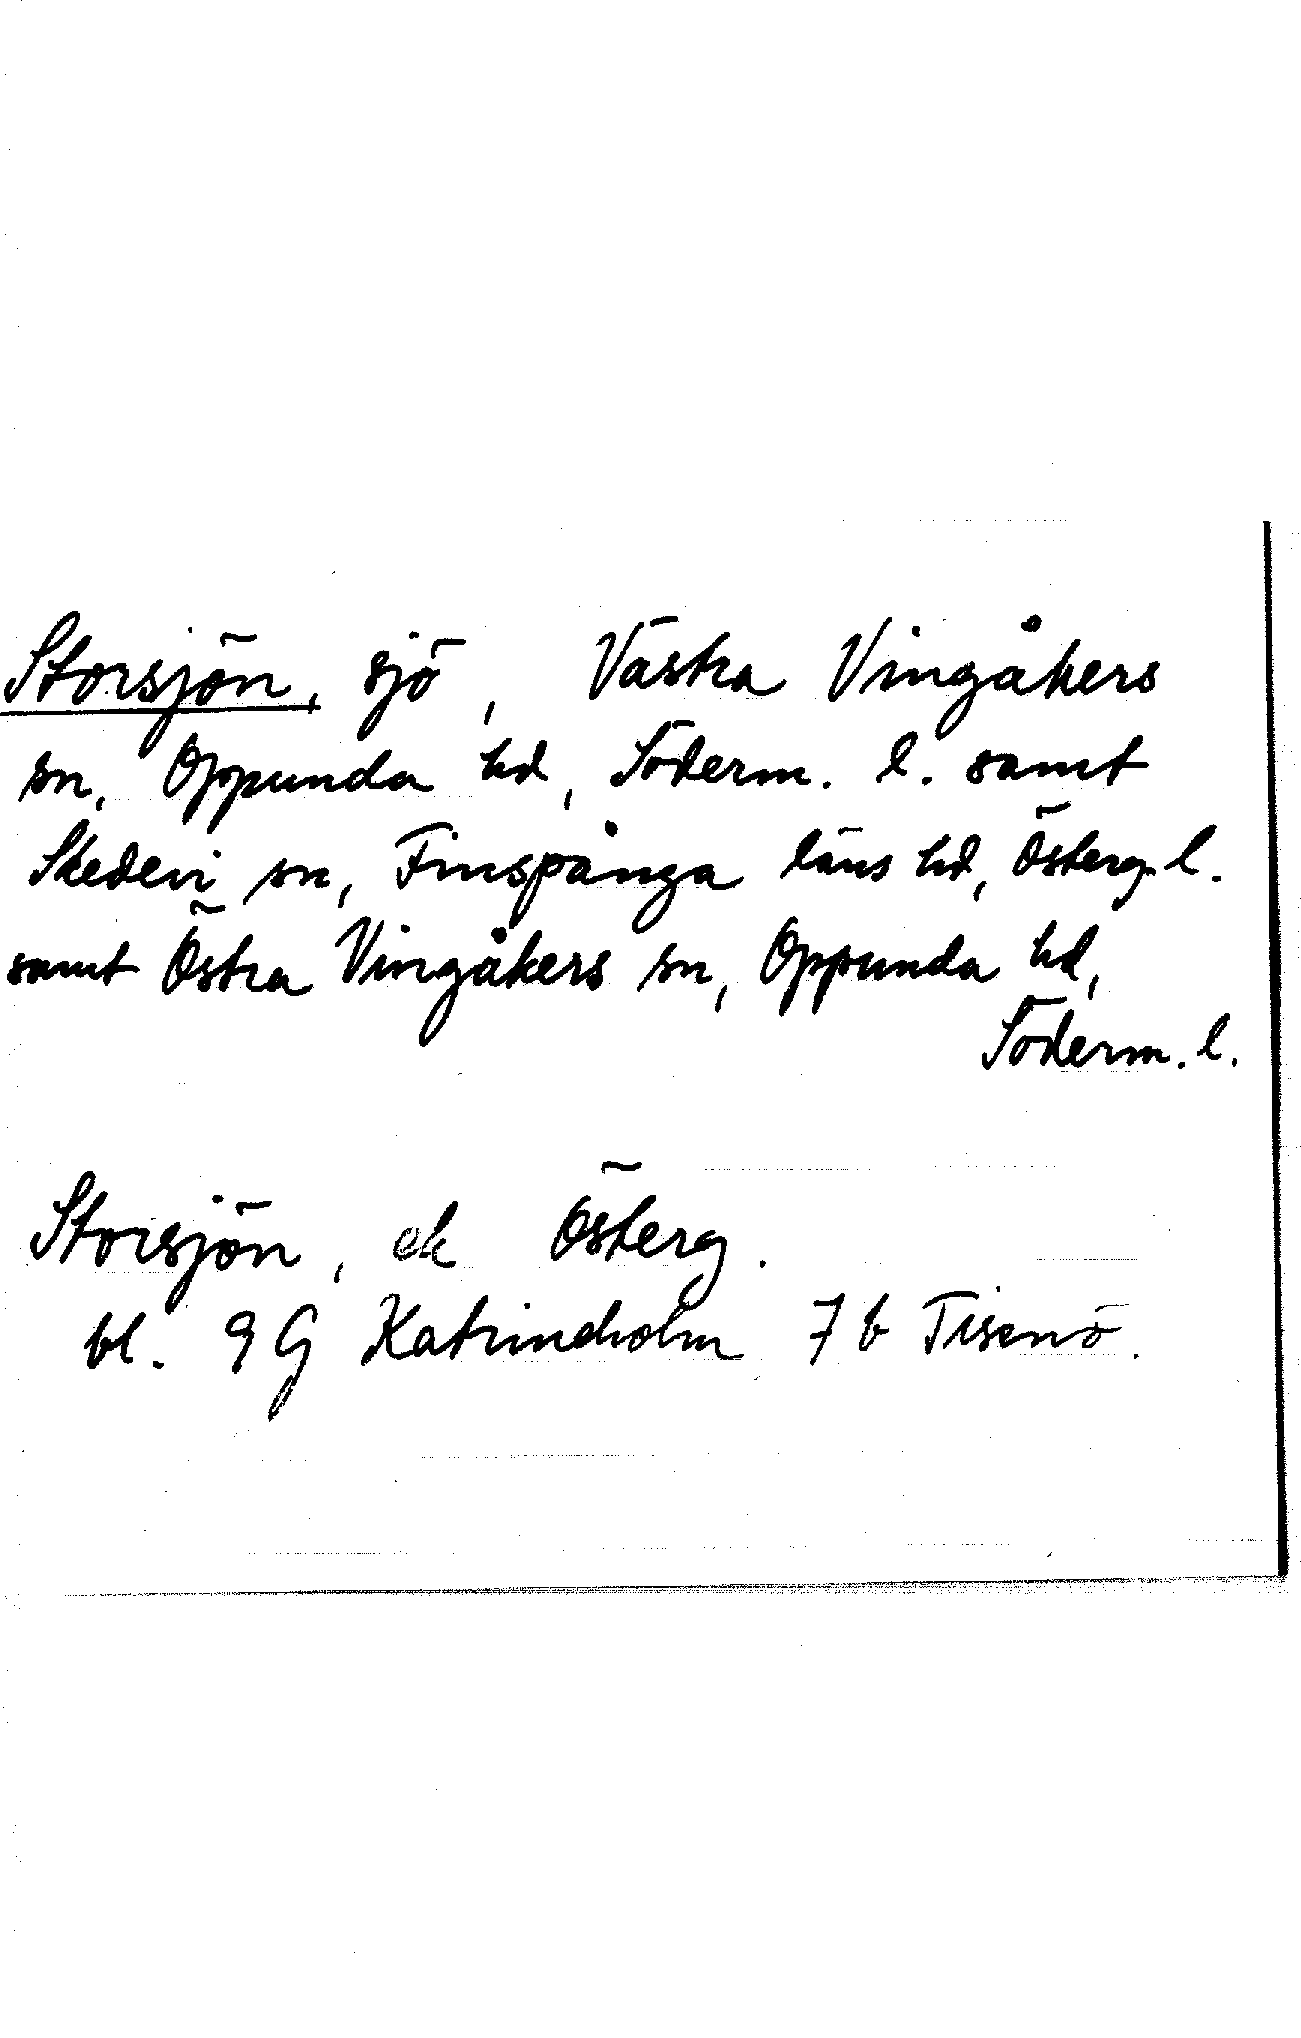 Storsjön, sjö, Västra Vingåkers
sn, Oppunda hd, Söderm. l. samt
Skedevi sn, Finspånga läns hd, Österg. l.
samt Östra Vingåkers sn, Oppunda hd,
Söderm. l.
Storsjön, ek Österg.
bl. 9G Katrineholm 7b Tisenö.